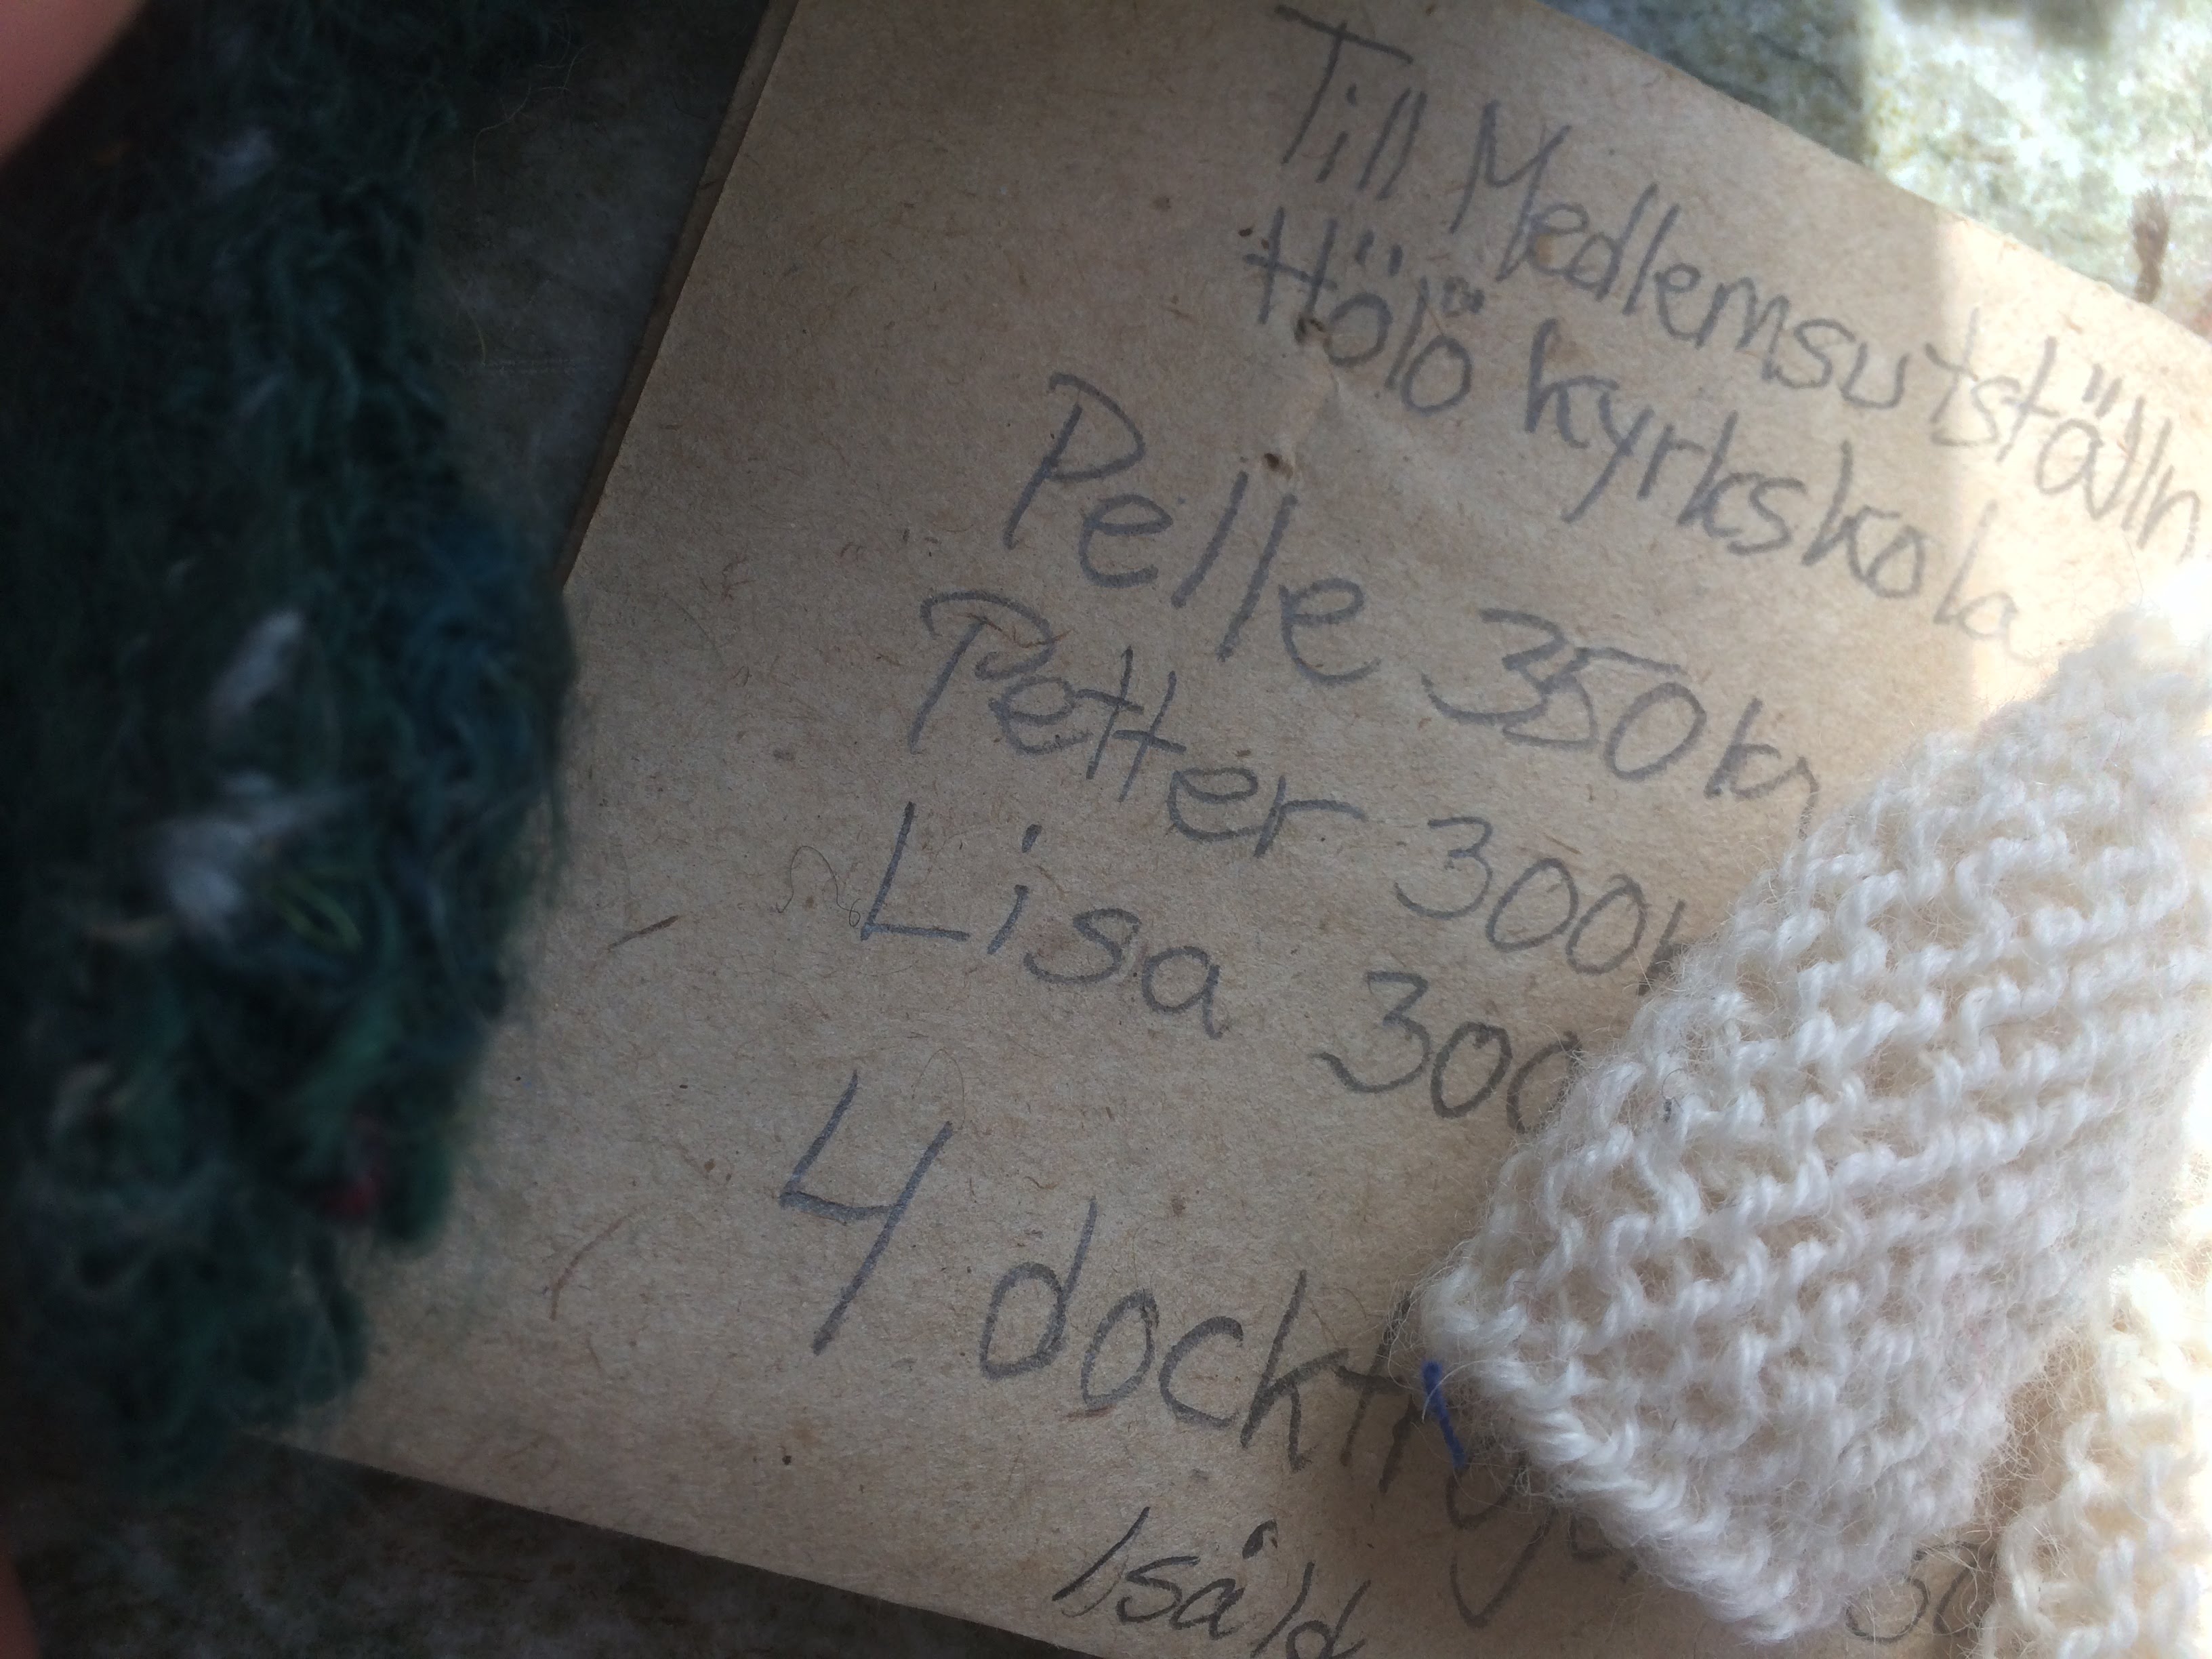 Till Medlemsutställn
Hölö kyrkskola
Pelle 350 kr
Petter 300 k
Lisa 300
4 docktr
1 såld